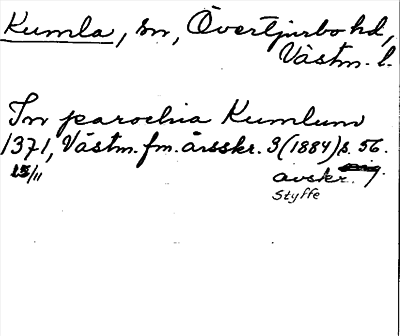 Kumla, sn, Övertjurbo hd,
Västm. l.
In parochia Kumlum
1371, Västm. fm. årsskr. 3 (1884) s. 56.
15/11 avskr.
Styffe